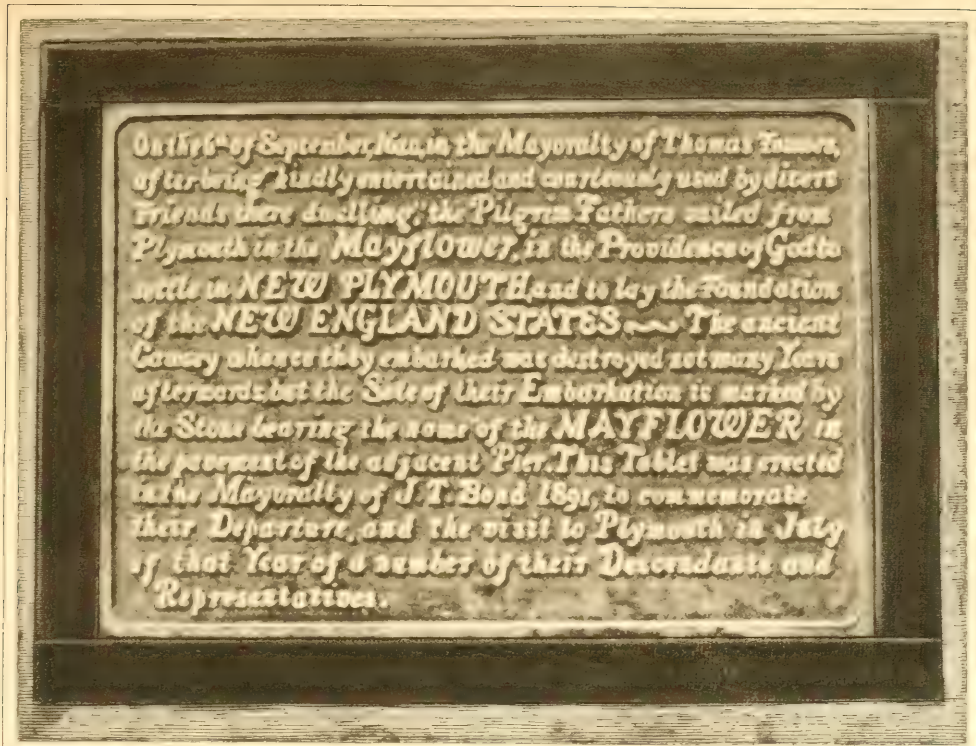 On the 6th of September, 1620, in the Mayoralty of Thomas Fownes,
after being "kindly entertained and courteously used by divers
Friends there dwelling," the Pilgrim Fathers sailed from
Plymouth in the Mayflower, in the Providence of God to
settle in NEW PLYMOUTH, and to lay the Foundation
of the NEW ENGLAND STATES ~ The ancient
Cawsey whence they embarked was destroyed not many Years
afterwards, but the Site of their Embarkation is marked by
the Stone bearing the name of the MAYFLOWER in
the pavement of the adjacent Pier. This Tablet was erected
in the Mayoralty of J. T. Bond 1891, to commemorate
their Departure, and the visit to Plymouth in July
of that Year of a number of their Descendants and
Representatives.